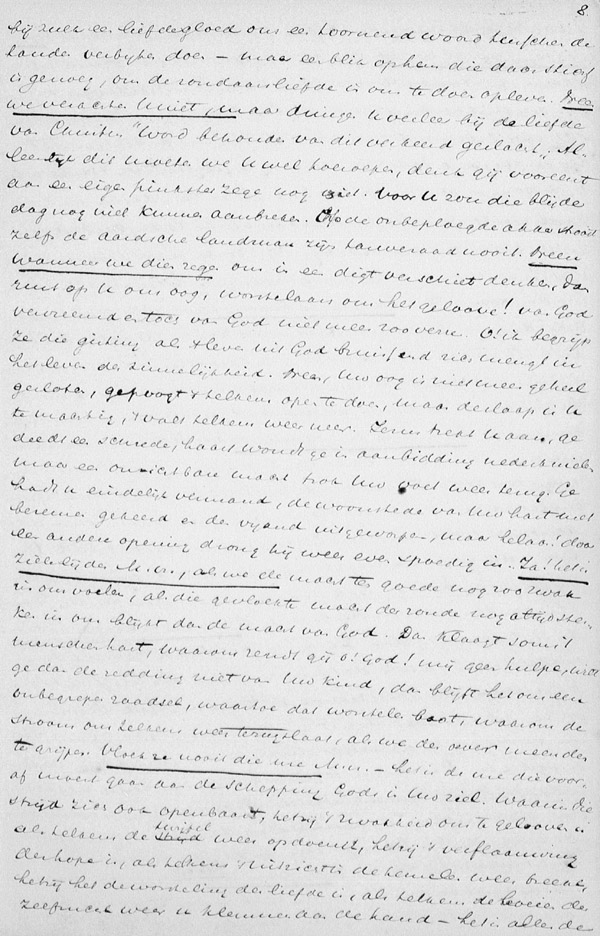 8.
bij zulk een liefdegloed ons een toornend woord tusschen de
landen verbijten doen – maar een blik op hem die daar stierf
is genoeg, om de zondaarsliefde in ons te doen opleven. Neen
we verachten U niet, maar dringen U veeleer bij de liefde
van Christus "Word behouden van dit verkeerd geslacht". Al-
leen dit moeten we U wel toeroepen, denk gij vooreerst
aan een eigen pinksterzege nog niet. Voor U zou die blijde
dag nog niet kunnen aanbreken. Op de onbeploegde akker strooit
zelfs de aardsche landman zijn tarwezaad nooit. Neen
wanneer we die zege ons in een digt verschiet denken, dan
rust op U ons oog, worstelaars om het geloove! van God
vervreemd en toch van God niet meer zoo verre. O! ik begrijp
ze die gisting als 't leven uit God bruisend zich mengt in
het leven der zinnelijkheid. Neen, Uw oog is niet meer geheel
gesloten, gepoogd 't telkens open te doen, maar de slaap is U
te machtig, 't valt telkens weer neer. Jezus trekt U aan, ge
deedt een schrede, haast wondt ge in aanbidding nederknielen
maar een onzichtbare macht trok Uw voet weer terug. Ge
hadt U eindelijk vermand, de woonstede van Uw hart met
bezemen gekeerd en de vijand uitgeworpen, maar helaas! door
een andere opening drong hij weer even spoedig in. Ja! het is
zielelijden M. H., als we de macht ten goede nog zoo zwak
in ons voelen, als die gevloekte macht der zonde nog altijd ster-
ker in ons blijkt dan de macht van God. Dan klaagt soms 't
menschenhart, waarom zendt gij o! God! mij geen hulpe, wilt
ge dan de redding niet van Uw kind, dan blijft het ons een
onbegrepen raadsel, waartoe dat worstelen baat, waarom de
stroom ons telkens weer terugslaat, als we den oever meenden
te grijpen. Vloek ze nooit die ure M. H. – het is de ure die voor-
af moest gaan aan de schepping Gods in Uw ziel. Waarin die
strijd zich ook openbaart, hetzij 't zwakheid om te gelooven is
als telkens de twijfel weer opdoemt, hetzij 't verflaauwing
der hope is, als telkens 't uitzicht in de hemelen weer breekt,
hetzij het de worsteling der liefde is, als telkens de boeien der
zelfzucht weer U klemmen aan de hand – het is alles de